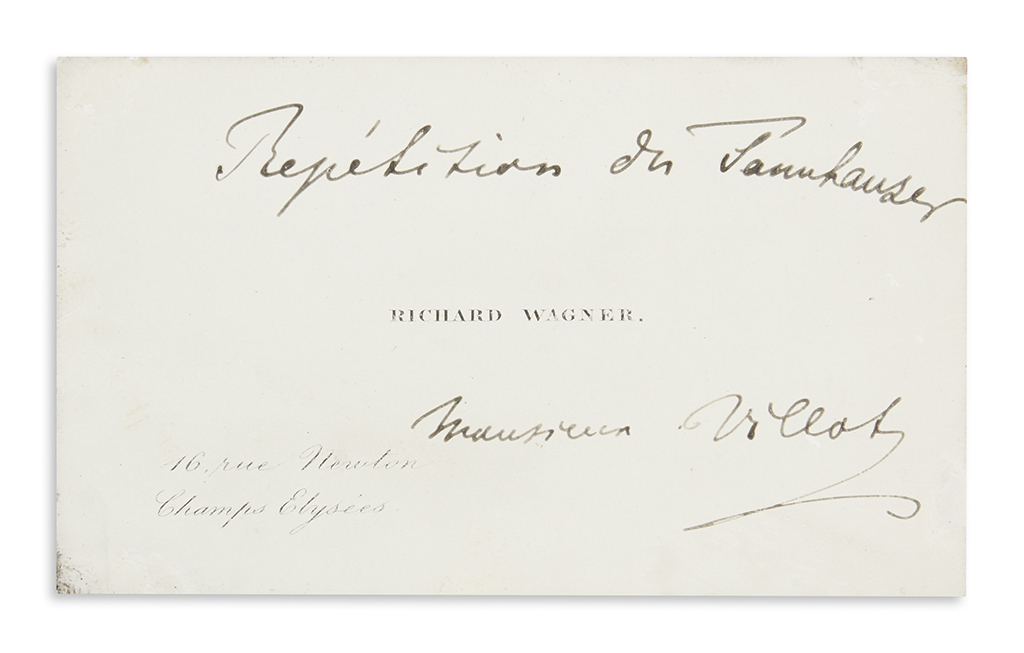 Repétition du Tannhauser
RICHARD WAGNER.
Monsieur Villot
16, rue Newton
Champs Elysées